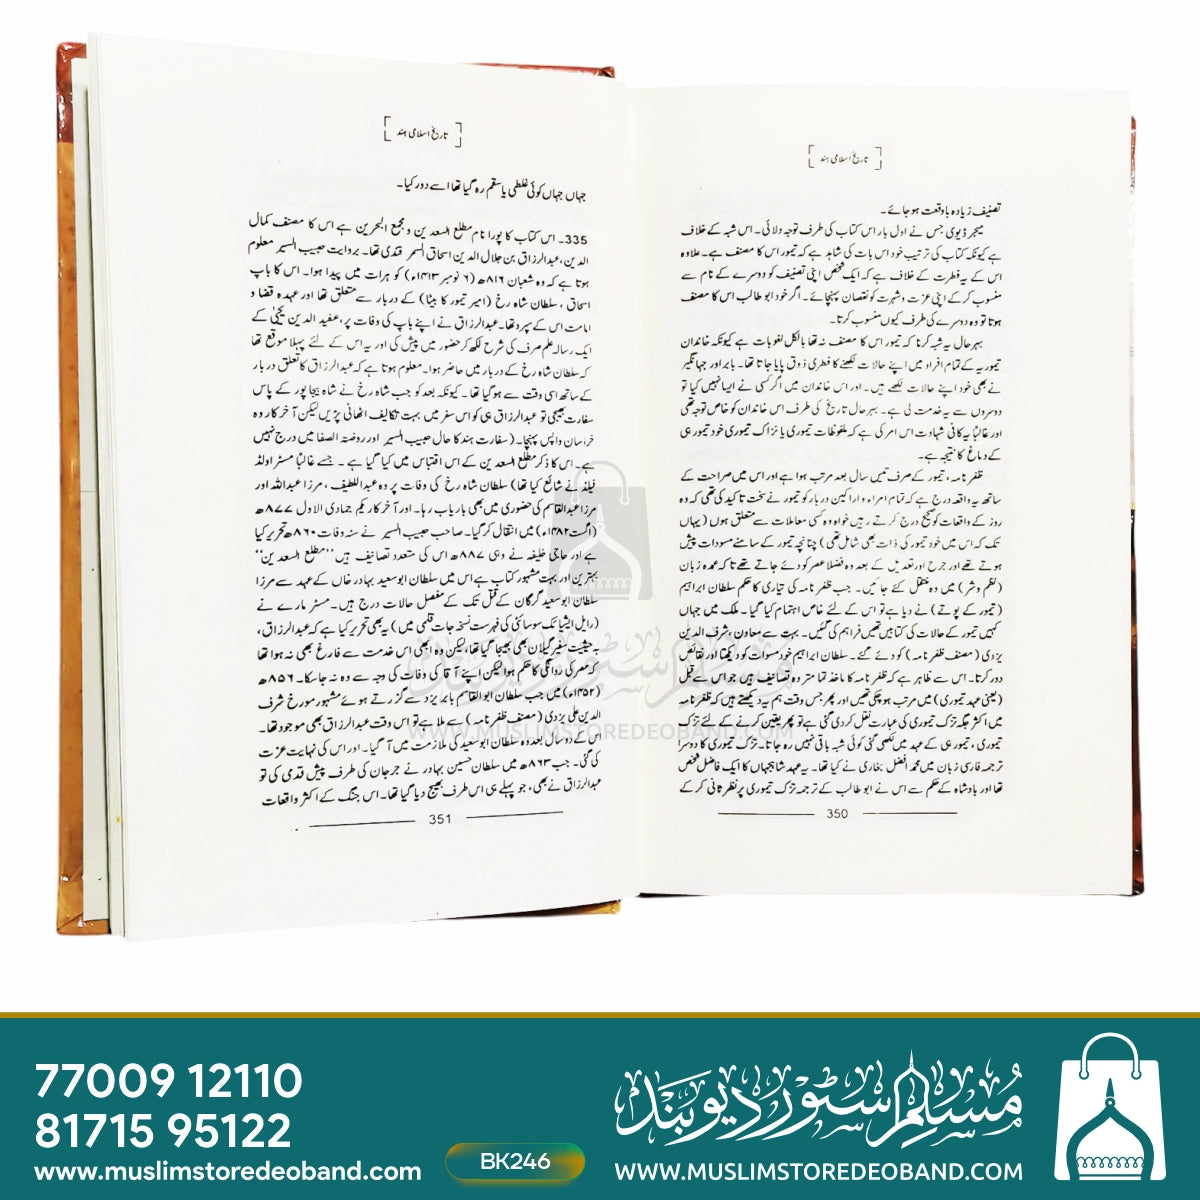 تاریخ اسلامی ہند
تصنیف زیادہ باوقعت ہوجائے۔
میجر ڈیوی جس نے اول بار اس کتاب کی طرف توجہ دلائی۔ اس شبہ کے خلاف
ہے کیونکہ کتاب کی ترتیب خود اس بات کی شاہد ہے کہ تیمور اس کا مصنف ہے۔ علاوہ
اس کے یہ فطرت کے خلاف ہے کہ ایک شخص اپنی تصنیف کو دوسرے کے نام سے
منسوب کرکے اپنی عزت و شہرت کو نقصان پہنچائے۔ اگر خود ابوطالب اس کا مصنف
ہوتا تو وہ دوسرے کی طرف کیوں منسوب کرتا۔
بہرحال یہ شبہ کرنا کہ تیمور اس کا مصنف نہ تھا بالکل لغو بات ہے کیونکہ خاندان
تیموریہ کے تمام افراد میں اپنے حالات لکھنے کا فطری ذوق پایا جاتا تھا۔ بابر اور جہانگیر
نے بھی خود اپنے حالات لکھے ہیں۔ اور اس خاندان میں اگر کسی نے ایسا نہیں کیا تو
دوسروں سے یہ خدمت لی ہے۔ بہرحال تاریخ کی طرف اس خاندان کو خاص توجہ تھی
اور غالباً یہ کافی شہادت اس امر کی ہے کہ ملفوظات تیموری یا تزک تیموری خود تیمور ہی
کے دماغ کا نتیجہ ہے۔
ظفر نامہ، تیمور کے صرف تیس سال بعد مرتب ہوا ہے اور اس میں صراحت کے
ساتھ یہ واقعہ درج ہے کہ تمام امراء و اراکین دربار کو تیمور نے سخت تاکید کی تھی کہ وہ
روز کے واقعات کو صحیح درج کرتے رہیں خواہ وہ کسی معاملات سے متعلق ہوں (یہاں
تک کہ اس میں خود تیمور کی ذات بھی شامل تھی) چنانچہ تیمور کے سامنے مسودات پیش
ہوتے تھے اور جرح اور تعدیل کے بعد وہ فضلا عصر کو دئے جاتے تھے تاکہ عمدہ زبان
(نظم و نثر) میں وہ منتقل کئے جائیں۔ جب ظفر نامہ کی تیاری کا حکم سلطان ابراہیم
(تیمور کے پوتے) نے دیا ہے تو اس کے لئے خاص اہتمام کیا گیا۔ ملک میں جہاں
کہیں تیمور کے حالات کی کتابیں تھیں فراہم کی گئیں۔ بہت سے معاون، شرف الدین
یزدی (مصنف ظفر نامہ) کو دئے گئے۔ سلطان ابراہیم خود مسودات کو دیکھتا اور نقائص
دور کرتا۔ اس سے ظاہر ہے کہ ظفر نامہ کا ماخذ تمام تر وہ تصانیف ہیں جو اس سے قبل
(یعنی عہد تیموری) میں مرتب ہو چکی تھیں اور پھر جس وقت ہم یہ دیکھتے ہیں کہ ظفر نامہ
میں اکثر جگہ تزک تیموری کی عبارت نقل کر دی گئی ہے تو پھر یقین کرنے کے لئے تزک
تیموری، تیمور ہی کے عہد میں لکھی گئی کوئی شبہ باقی نہیں رہ جاتا۔ تزک تیموری کا دوسرا
ترجمہ فارسی زبان میں محمد افضل بخاری نے کیا تھا۔ یہ عہد شاہجہاں کا ایک فاضل شخص
تھا اور بادشاہ کے حکم سے اس نے ابوطالب کے ترجمہ تزک تیموری پر نظر ثانی کر کے
350
تاریخ اسلامی ہند
جہاں جہاں کوئی غلطی یا سقم رہ گیا تھا اسے دور کیا۔
335۔ اس کتاب کا پورا نام مطلع السعدین و مجمع البحرین ہے اس کا مصنف کمال
الدین، عبدالرزاق بن جلال الدین اسحاق السمر قندی تھا۔ بروایت حبیب السیر معلوم
ہوتا ہے کہ وہ شعبان ۸۱۶ھ (۶ نومبر ۱۴۱۳ء) کو ہرات میں پیدا ہوا۔ اس کا باپ
اسحاق، سلطان شاہ رخ (امیر تیمور کا بیٹا) کے دربار سے متعلق تھا اور عہدہ قضا و
امامت اس کے سپرد تھا۔ عبدالرزاق نے اپنے باپ کی وفات پر، عضید الدین یحییٰ کے
ایک رسالہ علم صرف کی شرح لکھ کر حضور میں پیش کی اور یہ اس کے لئے پہلا موقع تھا
کہ سلطان شاہ رخ کے دربار میں حاضر ہوا۔ معلوم ہوتا ہے کہ عبدالرزاق کا تعلق دربار
کے ساتھ اسی وقت سے ہو گیا تھا۔ کیونکہ بعد کو جب شاہ رخ نے شاہ بیجا پور کے پاس
سفارت بھیجی تو عبدالرزاق ہی کو اس سفر میں بہت تکالیف اٹھانی پڑیں لیکن آخر کار وہ
خراسان واپس پہنچا۔ (سفارت ہند کا حال حبیب السیر اور روضتہ الصفا میں درج نہیں
ہے۔ اس کا ذکر مطلع السعدین کے اس اقتباس میں کیا گیا ہے۔ جسے غالباً مسٹر اولڈ
فیلڈ نے شائع کیا تھا) سلطان شاہ رخ کی وفات پر وہ عبداللطیف، مرزا عبداللہ اور
مرزا عبدالقاسم کی حضوری میں بھی باریاب رہا۔ اور آخر کار یکم جمادی الاول ۸۷۷ھ
(اگست ۱۴۸۲ء) میں انتقال کر گیا۔ صاحب حبیب السیر نے سنہ وفات ۸۶۰ھ تحریر کیا
ہے اور حاجی خلیفہ نے وہی ۸۸۷ھ اس کی متعدد تصانیف ہیں ’’مطلع السعدین‘‘
بہترین اور بہت مشہور کتاب ہے اس میں سلطان ابوسعید بہادر خاں کے عہد سے مرزا
سلطان ابوسعید گرگان کے قتل تک کے مفصل حالات درج ہیں۔ مسٹر مارلے نے
(رایل ایشیاٹک سوسائٹی کی فہرست نسخہ جات قلمی میں) یہ بھی تحریر کیا ہے کہ عبدالرزاق،
بہ حیثیت سفیر گیلان بھی بھیجا گیا تھا، لیکن وہ ابھی اس خدمت سے فارغ بھی نہ ہوا تھا
کہ مصر کی روانگی کا حکم ہوا لیکن اپنے آقا کی وفات کی وجہ سے وہ نہ جا سکا۔ ۸۵۶ھ
(۱۴۵۲ء) میں جب سلطان ابوالقاسم بابر یزد سے گزرتے ہوئے مشہور مورخ شرف
الدین علی یزدی (مصنف ظفر نامہ) سے ملا ہے تو اس وقت عبدالرزاق بھی موجود تھا۔
اس کے دو سال بعد وہ سلطان ابوسعید کی ملازمت میں آ گیا۔ اور اس کی نہایت عزت
کی گئی۔ جب ۸۶۳ھ میں سلطان حسین بہادر نے جرجان کی طرف پیش قدمی کی تو
عبدالرزاق نے بھی، جو پہلے ہی اس طرف بھیج دیا گیا تھا۔ اس جنگ کے اکثر واقعات
351
مسلم سٹور دیوبند
WWW.MUSLIMSTOREDEOBAND.COM
77009 12110
81715 95122
www.muslimstoredeoband.com
BK246
مسلم سٹور دیوبند
WWW.MUSLIMSTOREDEOBAND.COM